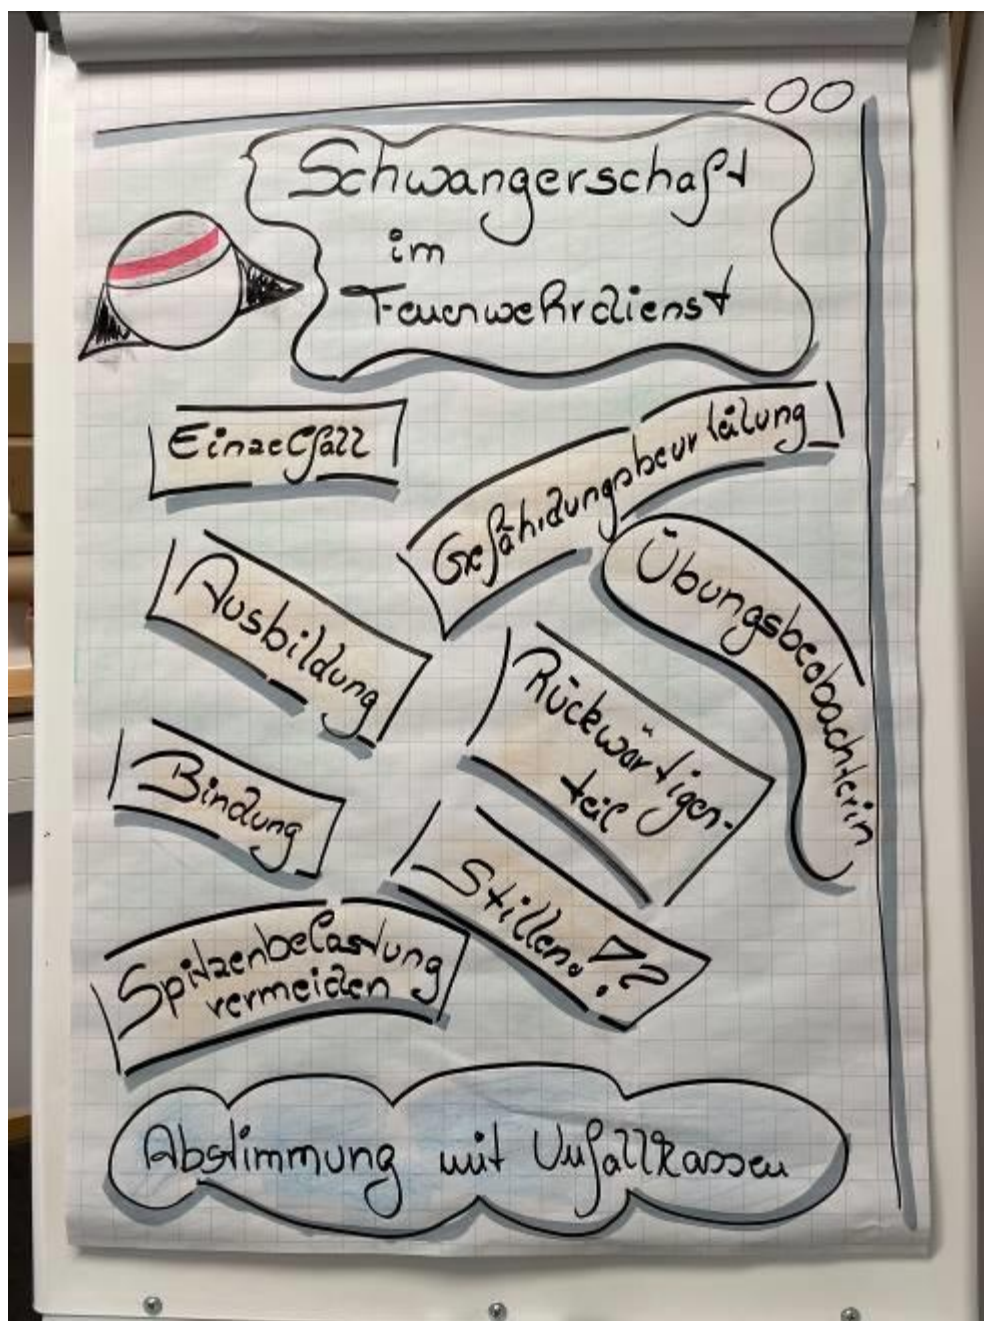 Schwangerschaft
im
Feuerwehrdienst
Einzelfall
Gefährdungsbeurteilung
Übungsbeobachterin
Ausbildung
Rückwärtigen-
teil
Bindung
Stillen!??
Spitzenbelastung
vermeiden
Abstimmung mit Unfallkassen